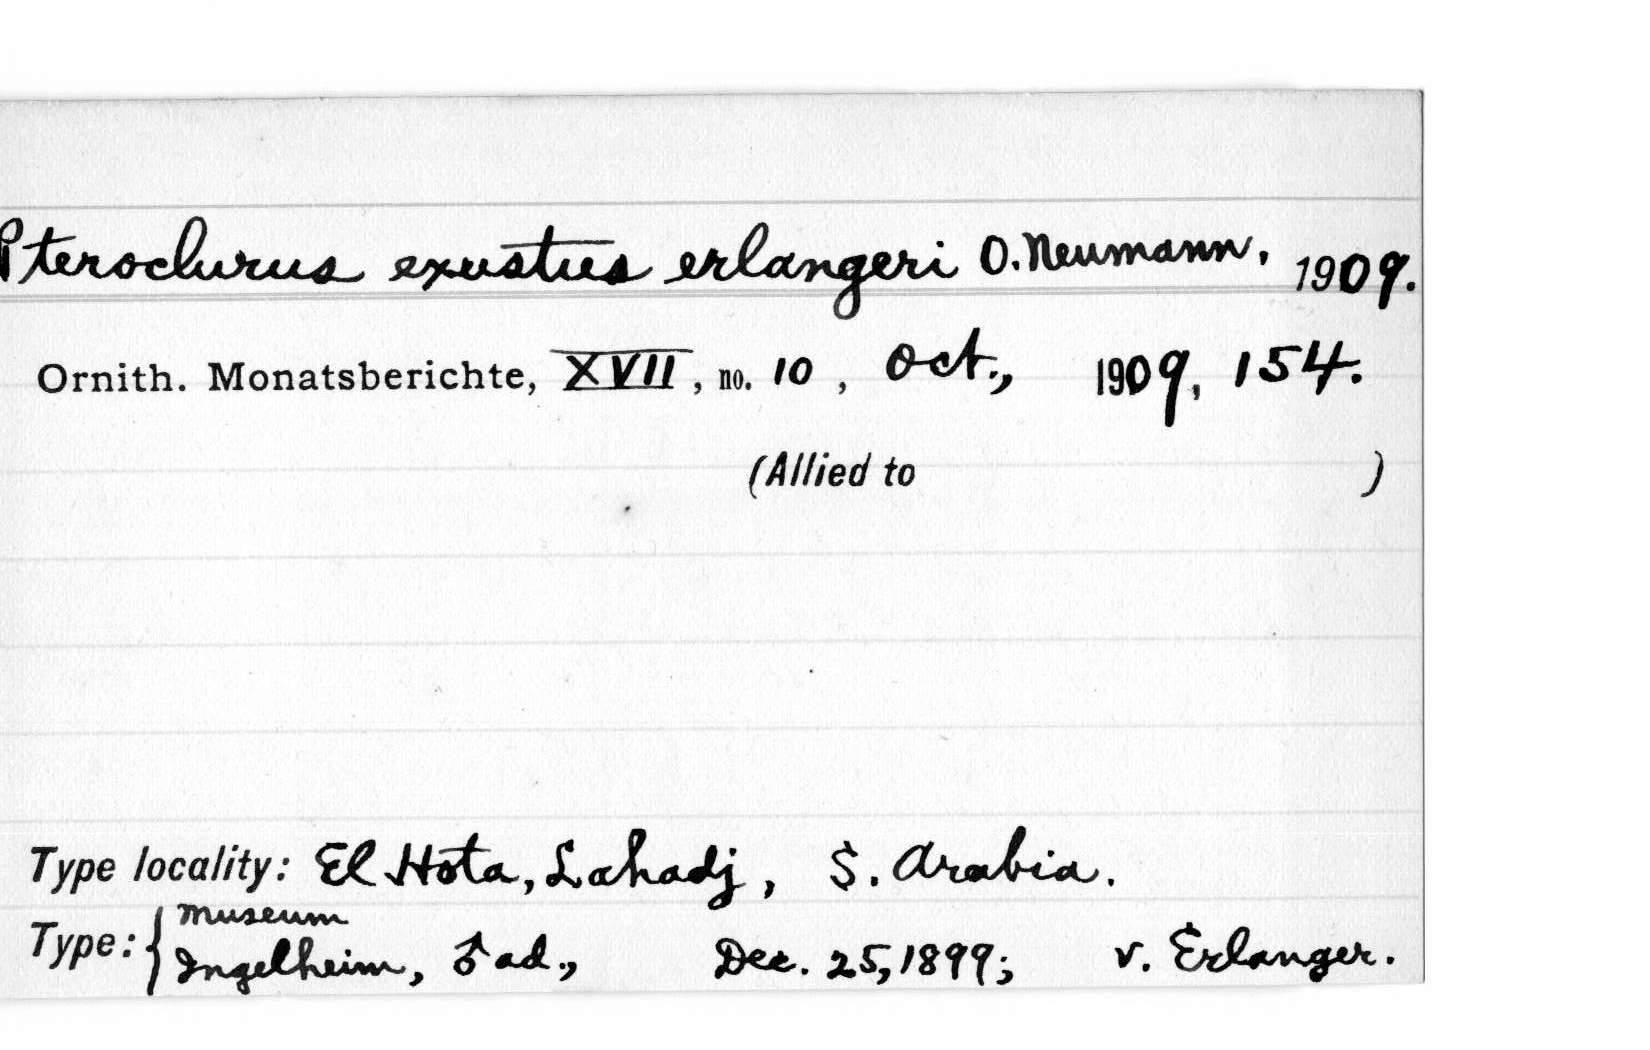 Pteroclurus exustus erlangeri O. Neumann. 1909.
Ornith. Monatsberichte, XVII, no. 10, Oct., 1909, 154.
(Allied to )
Type locality: El Hota, Lahadj, S. Arabia.
Type: { Museum
Ingelheim, ♂ ad., Dec. 25, 1899; v. Erlanger.